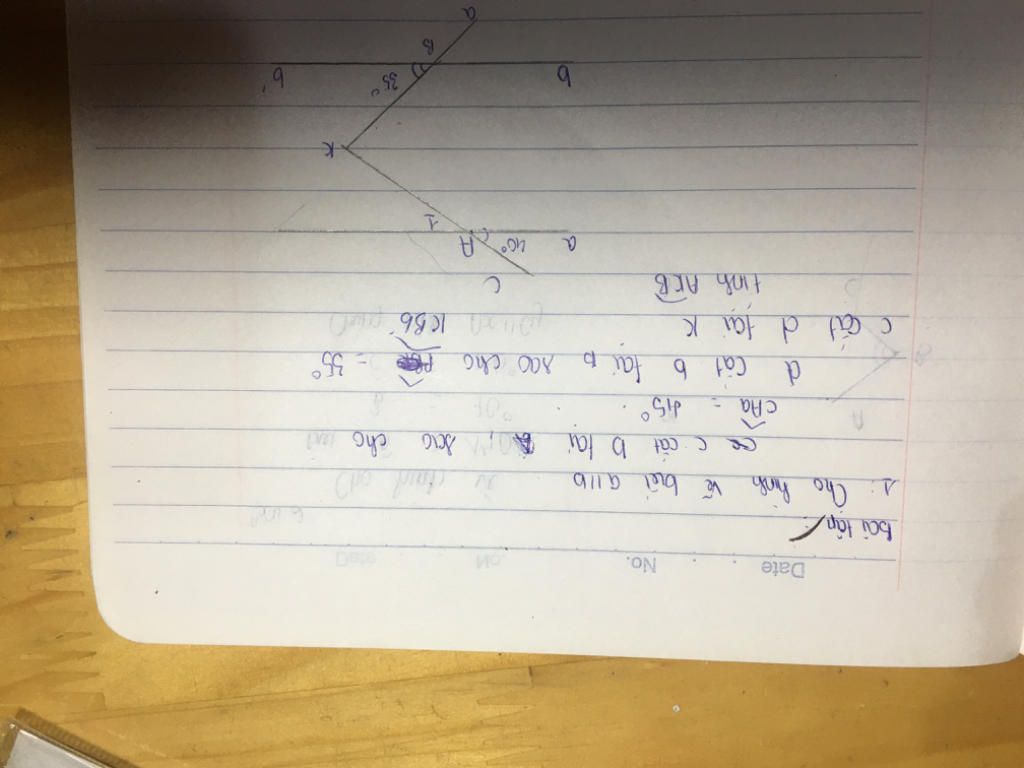 Date No.
bài tập
1: Cho hình vẽ biết a//b
c cắt b tại sao cho
cAa = 45°
d cắt b tại B sao cho = 35°
KBb'
c cắt d tại K
tính AKB
c
a 40° A 1
K
35°
b B b'
a